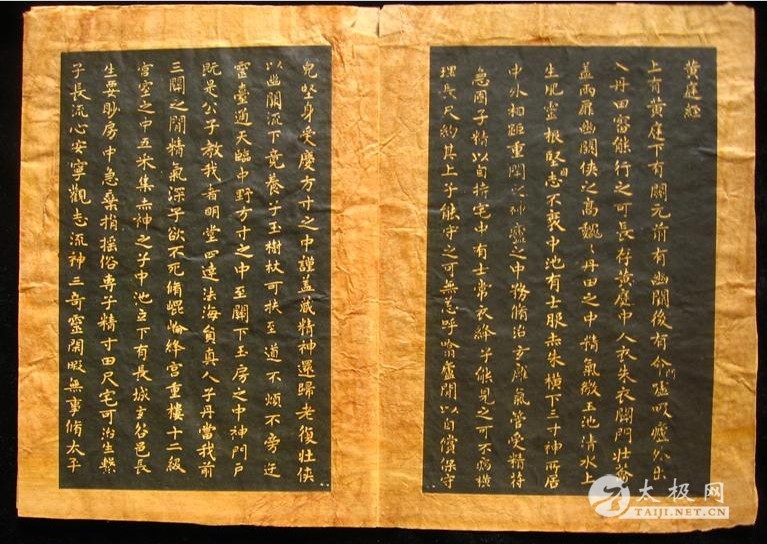 黄庭經
上有黄庭下有關元前有幽闕後有命門噓吸廬外出
入丹田審能行之可長存黄庭中人衣朱衣關門壯籥
蓋兩扉幽闕侠之高魏〻丹田之中精氣微玉池清水上
生肥靈根堅志不衰中池有士服赤朱横下三寸神所居
中外相距重閉之神廬之中務脩治玄廱氣管受精符
急固子精以自持宅中有士常衣絳子能見之可不病横
理長尺約其上子能守之可無恙呼噏廬間以自償保守
皃堅身受慶方寸之中謹蓋藏精神還歸老復壯侠
以幽闕流下竟養子玉樹杖可扶至道不煩不旁迕
靈臺通天臨中野方寸之中至關下玉房之中神門户
既是公子教我者明堂四達法海員真人子丹當我前
三關之間精氣深子欲不死脩崐崘絳宫重樓十二級
宫室之中五米集赤神之子中池立下有長城玄谷邑長
生要眇房中急棄捐摇俗專子精寸田尺宅可治生繫
子長流心安寧觀志流神三奇靈閑暇無事脩太平
太极网
TAIJI.NET.CN